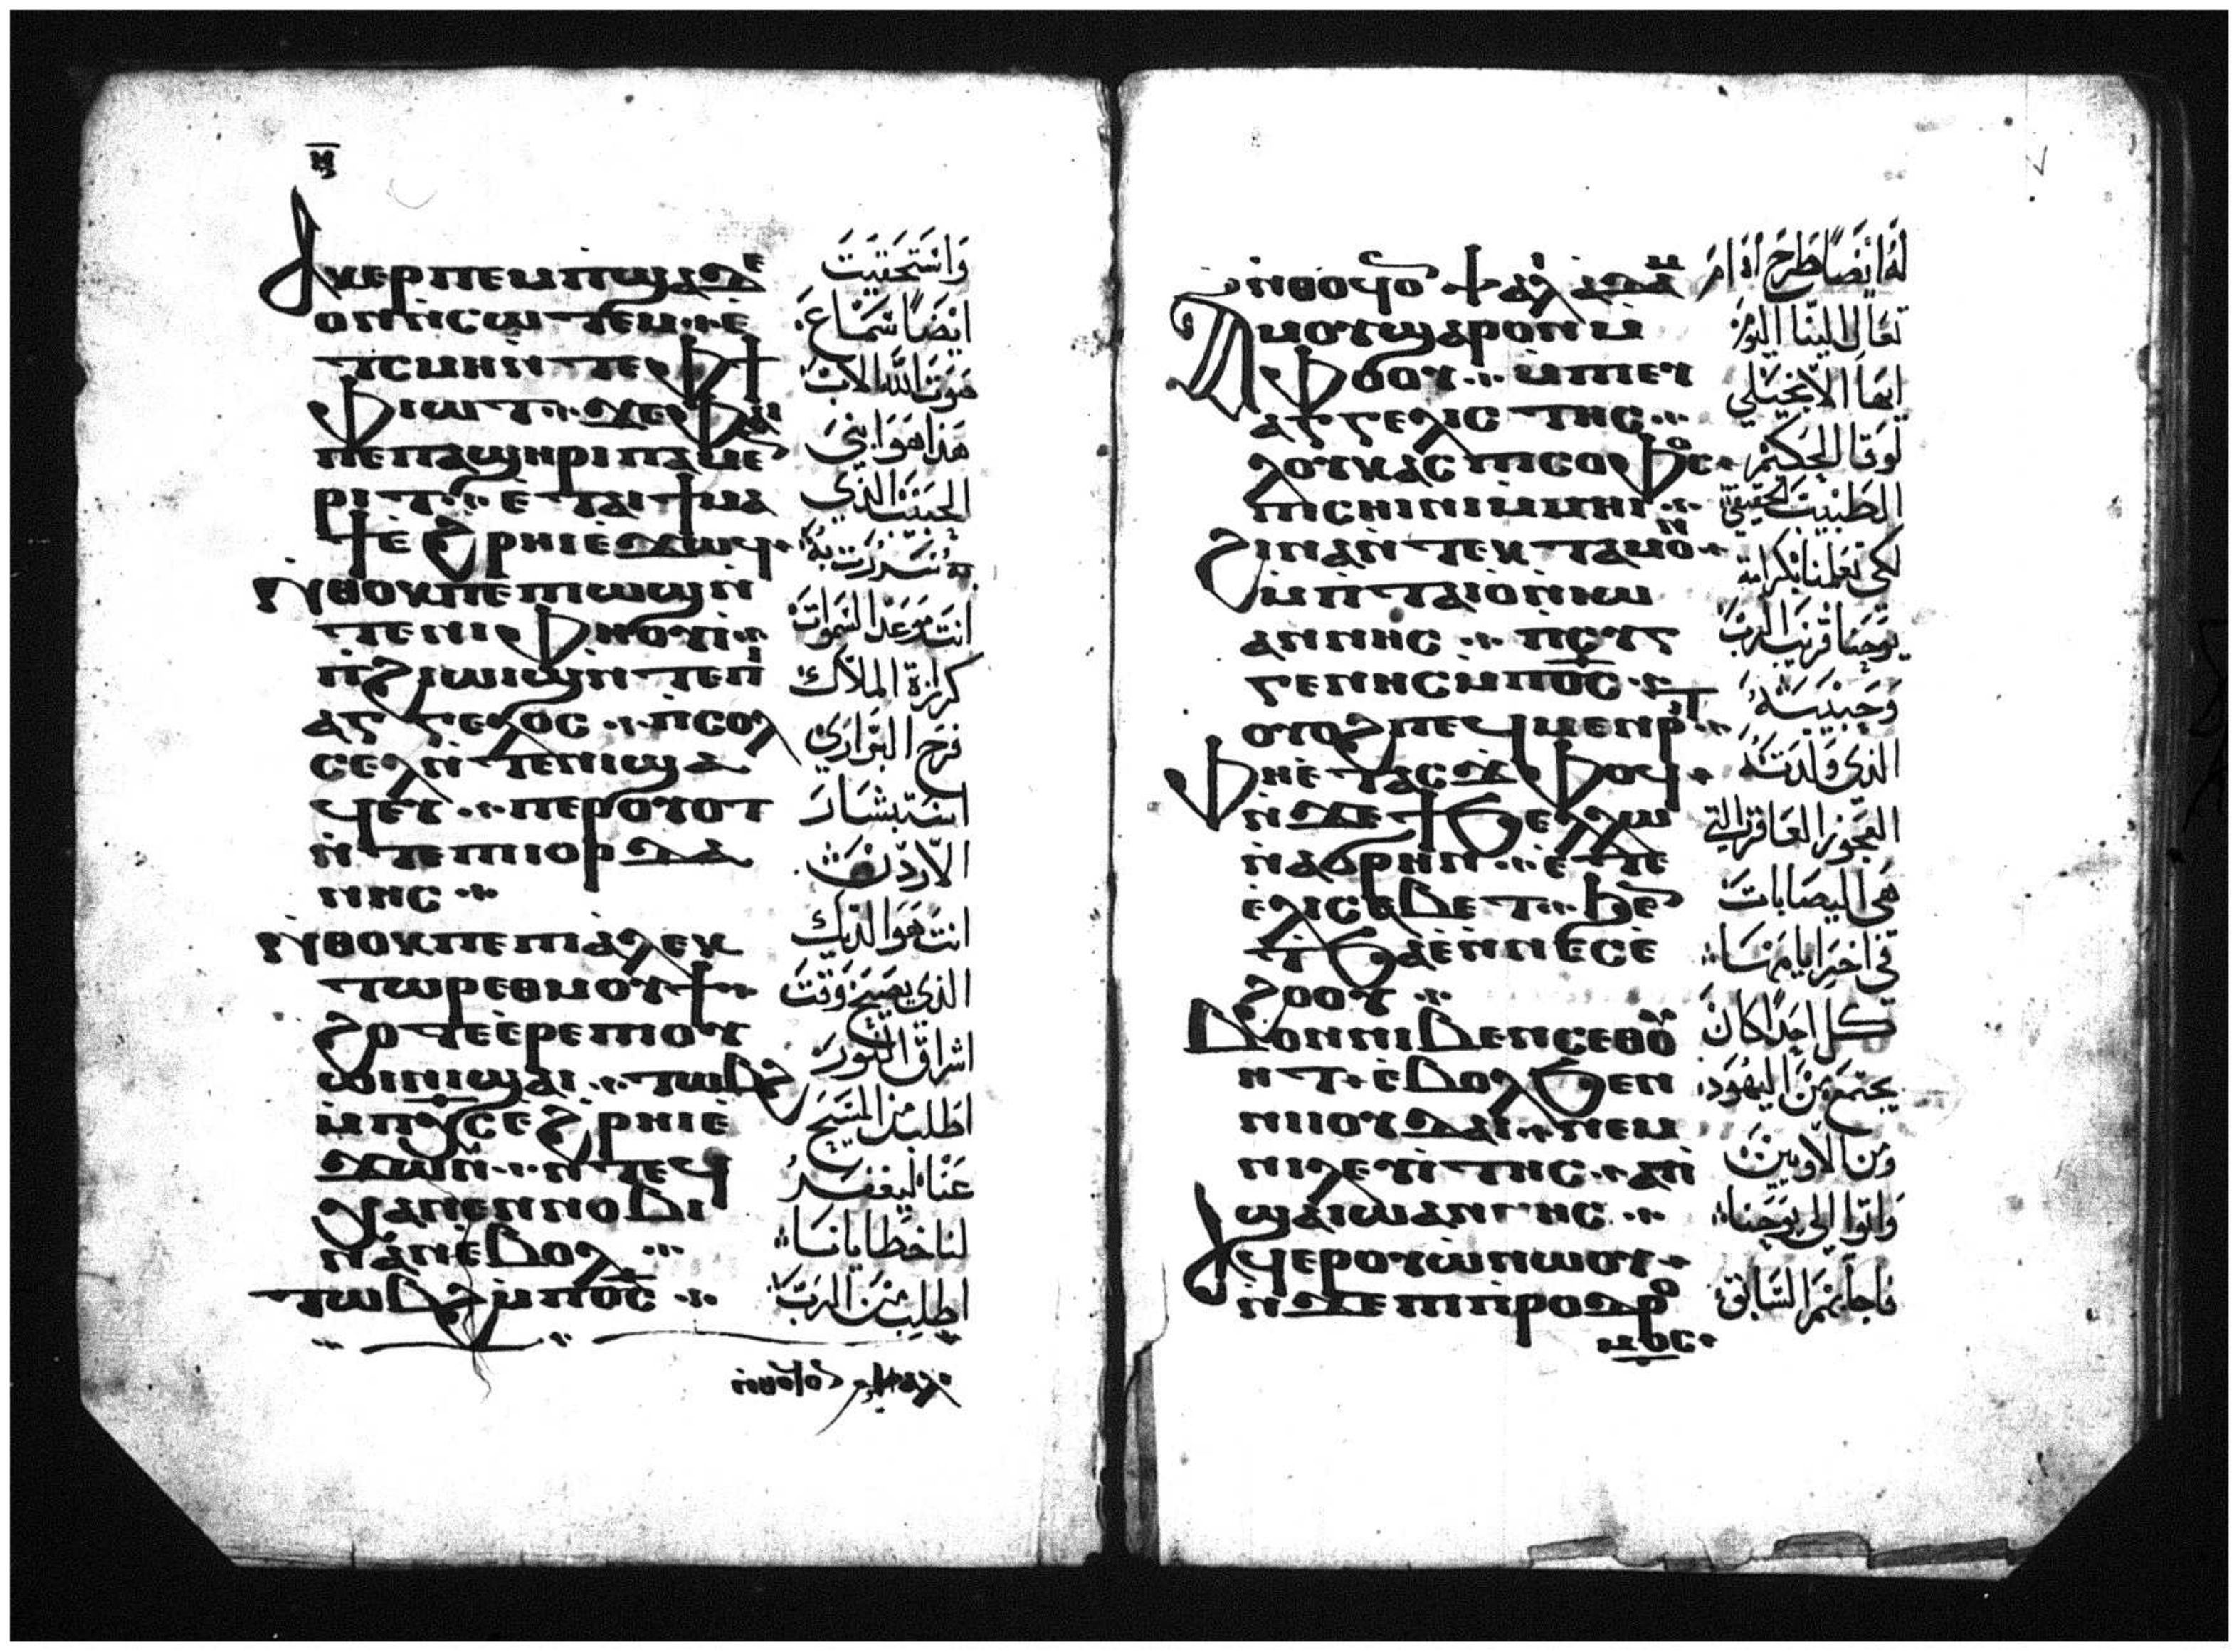 ⲏ
ⲁⲕⲉⲣⲡⲉⲙⲡϣⲁⲇⲉ
ⲟⲛⲛ̀ⲥⲱⲧⲉⲙ·ⲉ̀
ⲧⲥⲙⲏⲛ̀ⲧⲉⲫϯ
ⲫⲓⲱⲧ·ϫⲉⲫⲁⲓ
ⲡⲉⲡⲁϣⲏⲣⲓⲡⲁⲙⲉ
ⲣⲓⲧ·ⲉ̀ⲧⲁⲓϯⲙⲁ
ϯⲉ̀ϩⲣⲏⲓⲉ̀ϫⲱϥ·
ⲛ̀ⲑⲟⲕⲡⲉⲡⲓⲱϣⲛ̀
ⲧⲉⲛⲓⲫⲏⲟⲩⲓ̀·
ⲡ̀ϩⲓⲱⲓϣⲛ̀ⲧⲉⲛⲓ
ⲁⲅⲅⲉⲗⲟⲥ·ⲡⲥⲟⲗ
ⲥⲉⲗⲛ̀ⲧⲉⲛⲓϣⲁ
ϥⲉⲩ·ⲡⲉⲣⲟⲩⲟⲧ
ⲛ̀ⲧⲉⲡⲓⲟⲣⲇⲁ
ⲛⲏⲥ·
ⲛ̀ⲑⲟⲕⲡⲉⲡⲓⲁ̀ⲗⲉⲕ
ⲧⲱⲣⲉⲑⲙⲟⲩϯ·
ϩⲟⲧⲉⲉ̀ⲣⲉⲡⲓⲟⲩ
ⲱⲓⲛⲓϣⲁⲓ·ⲧⲱⲃϩ
ⲙ̀ⲡⲭⲥⲉϩⲣⲏⲓⲉ̀
ϫⲱⲛ·ⲛ̀ⲧⲉϥ
ⲭⲁⲛⲉⲛⲛⲟⲃⲓ
ⲛⲁⲛⲉ̀ⲃⲟⲗ·
ⲧⲱⲃϩⲙ̀ⲡⲟ̅ⲥ̅·
وَاسْتَحقيت
ايْضًا سَمَاع
صَوت اللّه الاب
هَذا هوَ ابْني
الحَبيب الذي
بهِ سُررت
انت هوَ السَمَوات
كرازة الملاك
فرَح البَراري
استبشار
الاردن
انت هوَ الديك
الذي يصيح وَقت
اشراق النور
اطلب من المسيح
عَنا ليغفر
لنا خطايانا
اطلب من الرب
ⲛ̀ⲑⲟϥⲟ ϯ
ⲁⲙⲟⲩϣⲁⲣⲟⲛⲙ̀
ⲫⲟⲟⲩ·ⲱ̀ⲡⲓⲉⲩ
ⲁⲅⲅⲉⲗⲓⲥⲧⲏⲥ·
ⲗⲟⲩⲕⲁⲥⲡⲓⲥⲟⲫⲟⲥ·
ⲡⲓⲥⲏⲓⲛⲓⲙ̀ⲙⲏⲓ·
ϩⲓⲛⲁⲛ̀ⲧⲉⲕⲧⲁⲙⲟⲛ·
ⲙ̀ⲡ̀ⲧⲁⲓⲟⲛ̀ⲓⲱ
ⲁⲛⲛⲏⲥ·ⲡⲥⲩⲅ
ⲅⲉⲛⲏⲥⲙ̀ⲡⲟ̅ⲥ̅·
ⲟⲩⲟϩⲡⲉϥⲙⲉⲛⲣⲓⲧ·
ⲫⲏⲉ̀ⲧⲁⲥϫⲫⲟϥ·
ⲛ̀ϫⲉϯϧⲉⲗⲗⲱ
ⲛ̀ⲁϭⲣⲏⲛ·ⲉ̀ⲧⲉ
ⲉ̀ⲗⲓⲥⲁⲃⲉⲧ·ϧⲉⲛ
ⲧϧⲁⲉ̀ⲛ̀ⲛⲉⲥⲉ̀
ϩⲟⲟⲩ·
ⲃⲟⲛⲛⲓⲃⲉⲛⲥⲉⲑⲟⲩ
ⲏⲧ·ⲉ̀ⲃⲟⲗϧⲉⲛ
ⲛⲓⲓⲟⲩⲇⲁⲓ·ⲛⲉⲙ
ⲛⲓⲗⲉⲩⲓ̀ⲧⲏⲥ·
ϣⲁⲓⲱⲁⲛⲛⲏⲥ·
ⲁϥⲉⲣⲟⲩⲱ̀ⲛⲱⲟⲩ·
ⲛ̀ϫⲉⲡⲓⲡ̀ⲣⲟⲇⲣⲟ
ⲙⲟⲥ·
لهُ ايْضًا طرح ادام
تعَال الينا اليَوم
ايهَا الانجيلي
لوقا الحكيم
الطبيب الحقيقي
لكي تعلمنا بكرامة
يوحنا قريب الرب
وَحبيبَهُ
الذي وَلدَتهُ
العجوز العَاقر التي
هيَ اليصَابات
في اخر ايامهَا
كل احد كان
يجتمع من اليهود
ومن اللاويين
وَاتوا الي يوحنا
فاجابهم السَابق